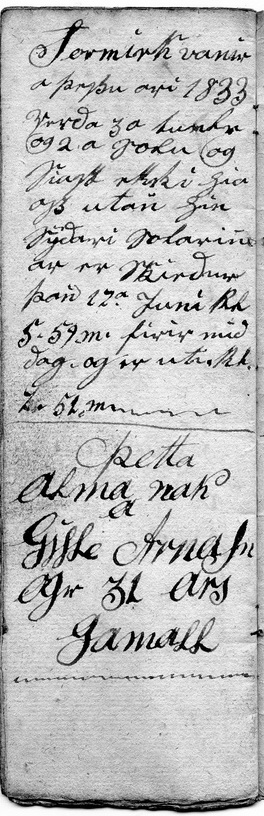 Formirkvanir
a þessu ari 1833
Verda 3 a tunkr
og 2 a Solu og
Siast ekki hia
oss utan hin
Sydari Solarinn
ar er Skiedur
þan 17a Juni kl
5. 59 m. firir mid
dag. og er uti. kl.
51 m
Þetta
alma nak
a
Gisle Arnason
Ogr 31 ars
Gamall